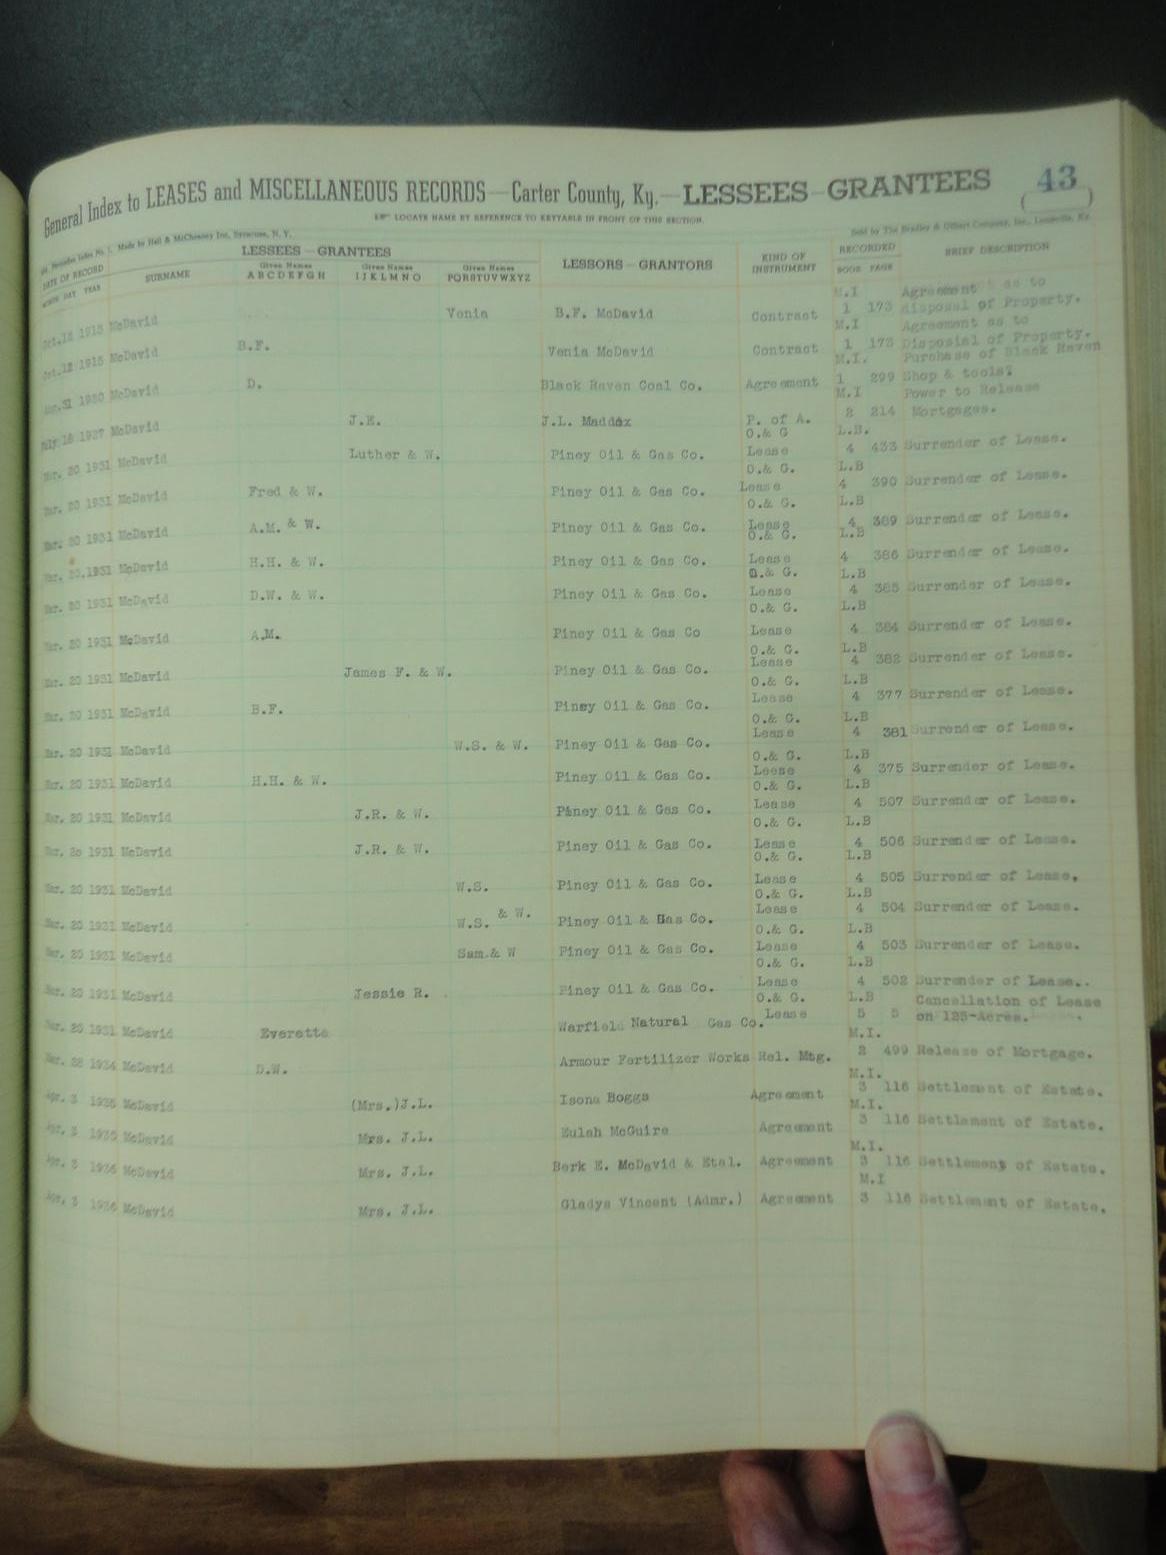 General Index to LEASES and MISCELLANEOUS RECORDS—Carter County, Ky.—LESSEES—GRANTEES 43
LOCATE NAME BY REFERENCE TO KEYTABLE IN FRONT OF THIS SECTION.
Made by Hall & McChesney Inc. Syracuse, N. Y. Sold by The Bradley & Gilbert Company, Inc., Louisville, Ky.
LESSEES—GRANTEES LESSORS—GRANTORS KIND OF INSTRUMENT RECORDED BRIEF DESCRIPTION
DATE OF RECORD SURNAME Given Names Given Names Given Names
MONTH DAY YEAR ABCDEFGH IJKLMNO PQRSTUVWXYZ BOOK PAGE
M.I Agreement as to
Oct.12 1915 McDavid Venia B.F. McDavid Contract 1 173 disposal of Property.
M.I Agreement as to
Oct.12 1915 McDavid B.F. Venia McDavid Contract 1 173 Disposial of Property.
M.I. Purchase of Black Raven
31 1920 McDavid D. Black Raven Coal Co. Agreement 1 299 Shop & tools?
M.I Power to Release
July 18 1927 McDavid J.E. J.L. Maddox P. of A. 2 214 Mortgages.
O.& G L.B.
Mar. 20 1931 McDavid Luther & W. Piney Oil & Gas Co. Lease 4 433 Surrender of Lease.
O.& G. L.B
Mar. 20 1931 McDavid Fred & W. Piney Oil & Gas Co. Lease 4 390 Surrender of Lease.
O.& G. L.B
Mar. 20 1931 McDavid A.M. & W. Piney Oil & Gas Co. Lease 4 389 Surrender of Lease.
O.& G. L.B
Mar. 20.1931 McDavid H.H. & W. Piney Oil & Gas Co. Lease 4 386 Surrender of Lease.
O.& G. L.B
Mar. 20 1931 McDavid D.W. & W. Piney Oil & Gas Co. Lease 4 385 Surrender of Lease.
O.& G. L.B
Mar. 20 1931 McDavid A.M. Piney Oil & Gas Co Lease 4 384 Surrender of Lease.
O.& G. L.B
Mar. 20 1931 McDavid James F. & W. Piney Oil & Gas Co. Lease 4 382 Surrender of Lease.
O.& G. L.B
Mar. 20 1931 McDavid B.F. Piney Oil & Gas Co. Lease 4 377 Surrender of Lease.
O.& G. L.B
Mar. 20 1931 McDavid W.S. & W. Piney Oil & Gas Co. Lease 4 381 Surrender of Lease.
O.& G. L.B
Mar. 20 1931 McDavid H.H. & W. Piney Oil & Gas Co. Lease 4 375 Surrender of Lease.
O.& G. L.B
Mar. 20 1931 McDavid J.R. & W. Piney Oil & Gas Co. Lease 4 507 Surrender of Lease.
O.& G. L.B
Mar. 20 1931 McDavid J.R. & W. Piney Oil & Gas Co. Lease 4 506 Surrender of Lease.
O.& G. L.B
Mar. 20 1931 McDavid W.S. Piney Oil & Gas Co. Lease 4 505 Surrender of Lease.
O.& G. L.B
Mar. 20 1931 McDavid W.S. & W. Piney Oil & Gas Co. Lease 4 504 Surrender of Lease.
O.& G. L.B
Mar. 20 1931 McDavid Sam.& W Piney Oil & Gas Co. Lease 4 503 Surrender of Lease.
O.& G. L.B
Mar. 20 1931 McDavid Jessie R. Piney Oil & Gas Co. Lease 4 502 Surrender of Lease..
O.& G. L.B Cancellation of Lease
Mar. 20 1931 McDavid Everette Warfield Natural Gas Co. Lease 5 5 on 125-Acres.
M.I.
Mar. 28 1934 McDavid D.W. Armour Fertilizer Works Rel. Mtg. 2 499 Release of Mortgage.
M.I.
Apr. 3 1936 McDavid (Mrs.)J.L. Isona Boggs Agreement 3 116 Settlement of Estate.
M.I.
Apr. 3 1936 McDavid Mrs. J.L. Eulah McGuire Agreement 3 116 Settlement of Estate.
M.I.
Apr. 3 1936 McDavid Mrs. J.L. Berk E. McDavid & Etal. Agreement 3 116 Settlement of Estate.
M.I
Apr. 3 1936 McDavid Mrs. J.L. Gladys Vincent (Admr.) Agreement 3 116 Settlement of Estate.